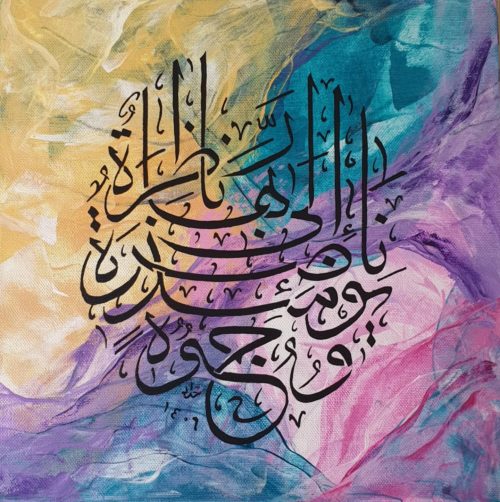 وُجُوهٌ
يَوْمَئِذٍ
نَاضِرَةٌ
إِلَى رَبِّهَا
نَاظِرَةٌ